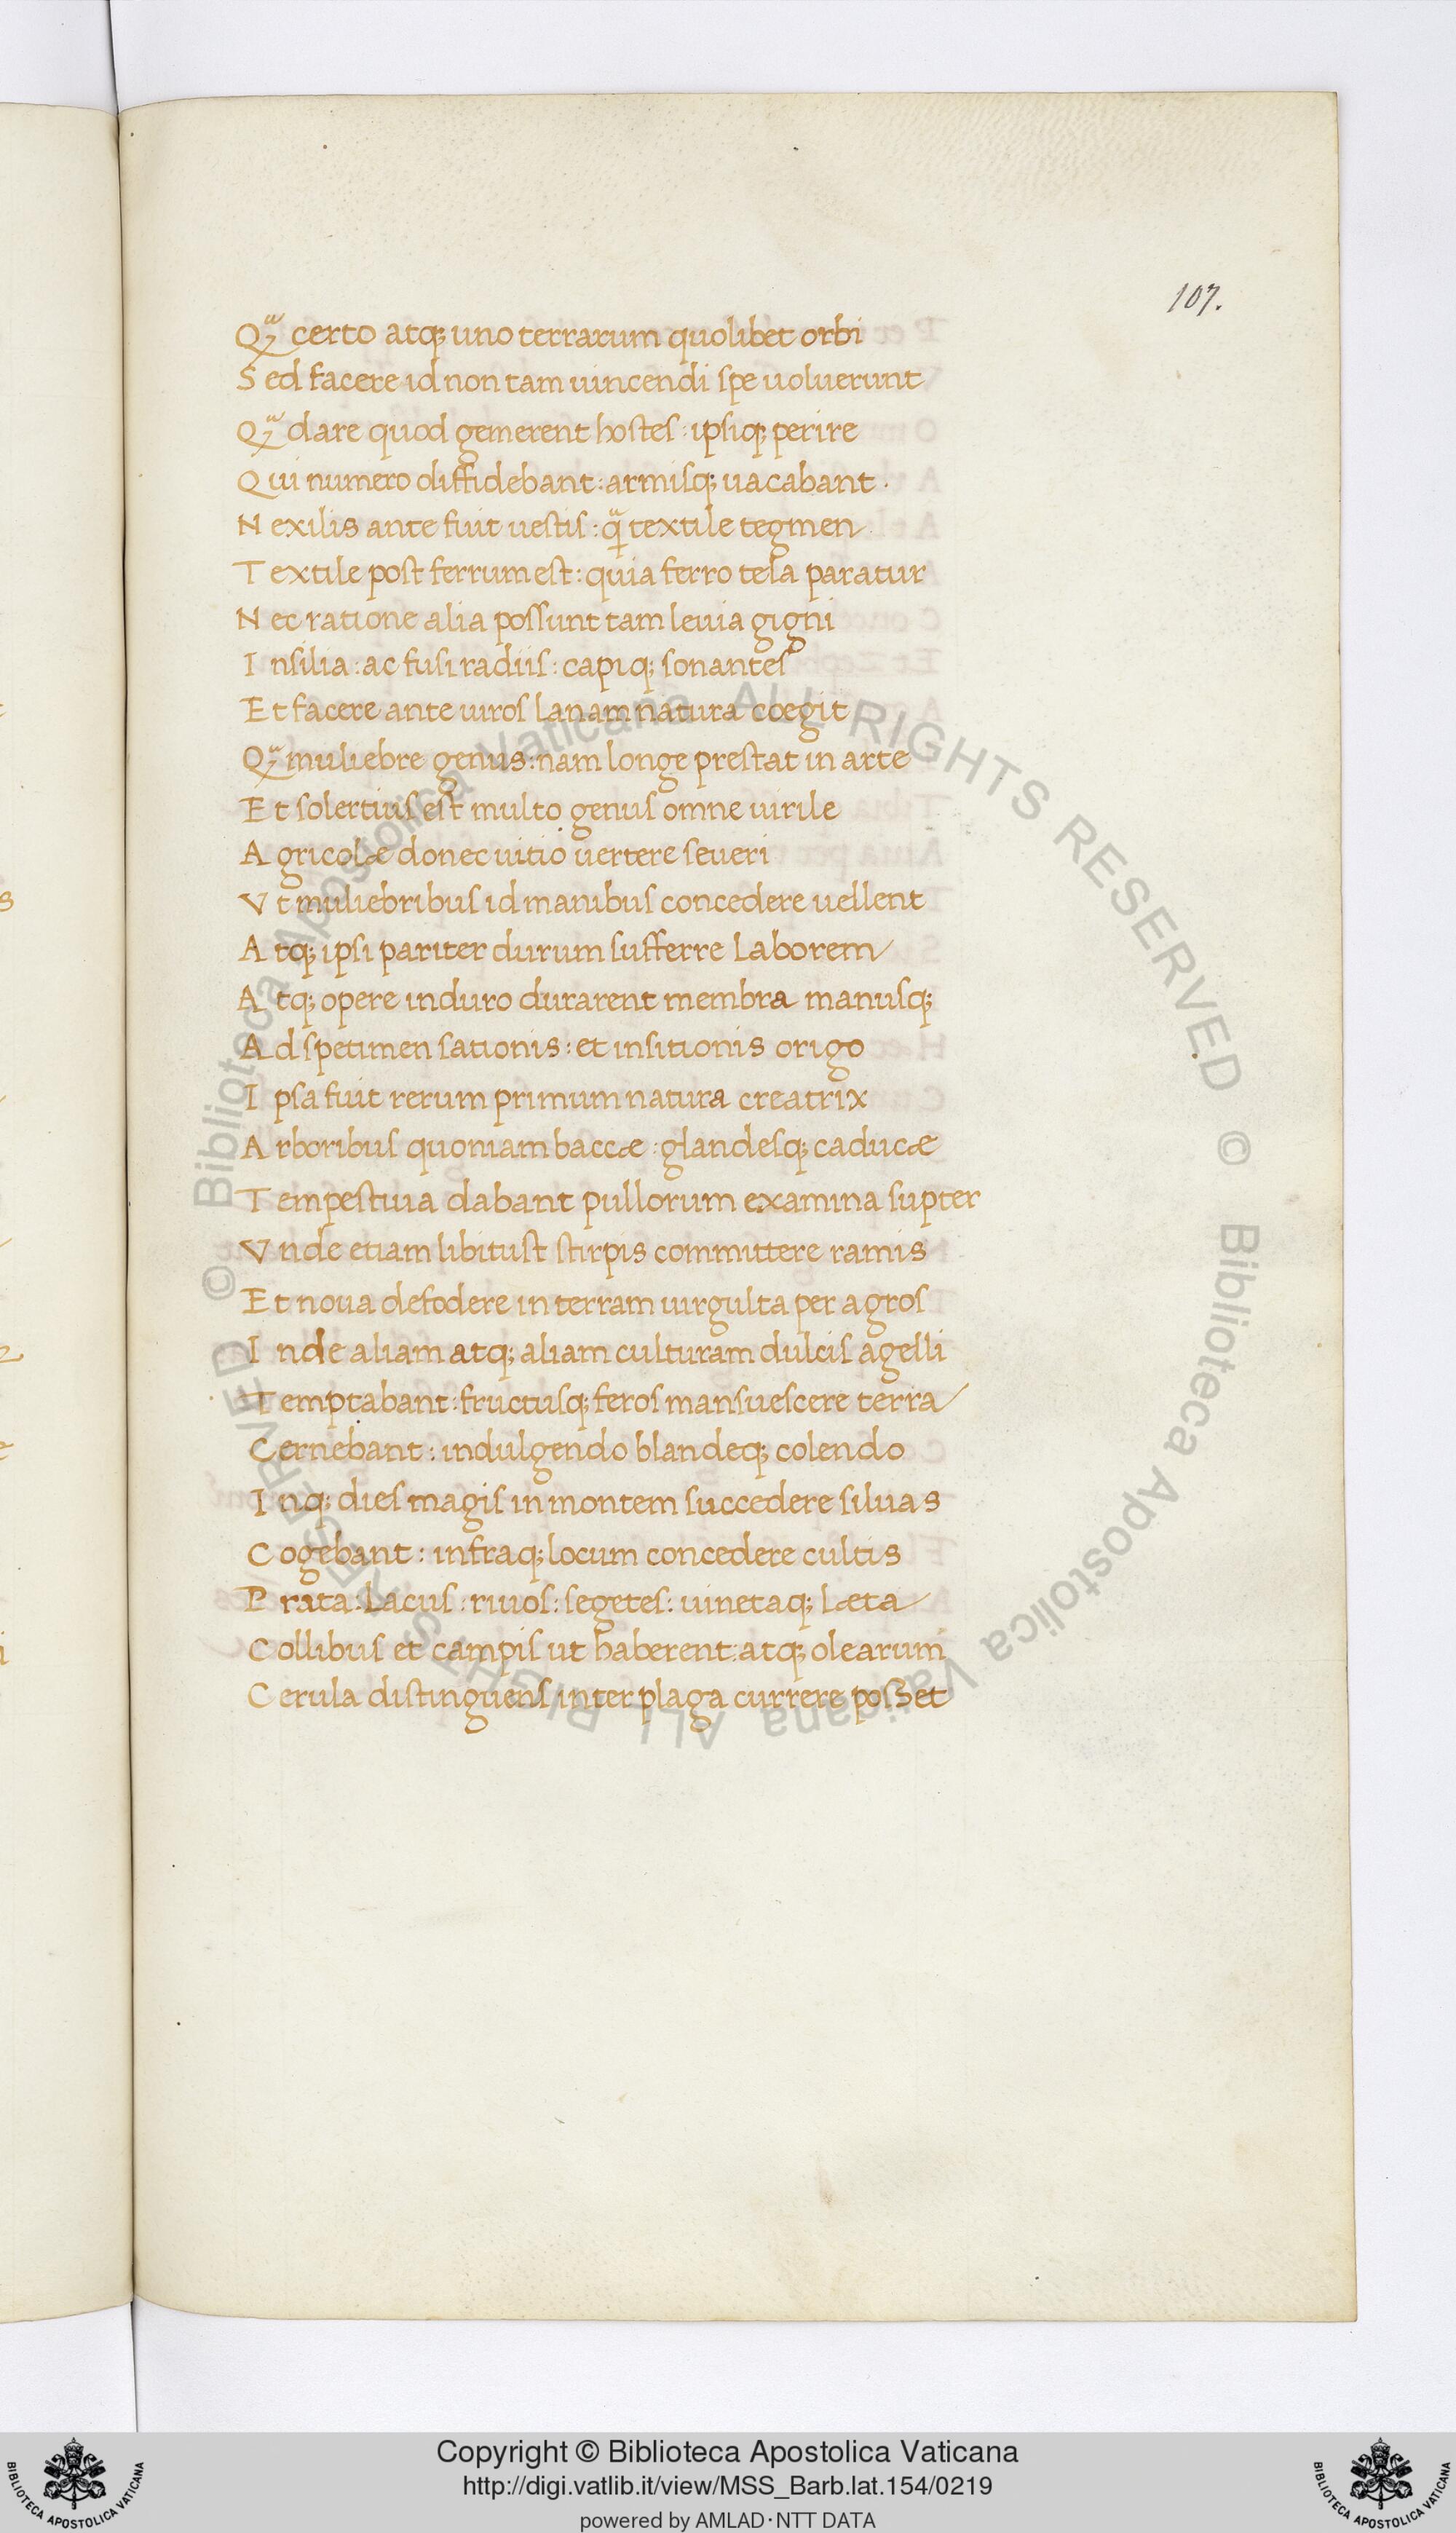 107.
Qᷓꝫ certo atq; uno terrarum quolibet orbi
Sed facere id non tam uincendi spe uoluerunt
Qᷓꝫ dare quod gemerent hostes : ipsiq; perire
Qui numero diffidebant : armisq; uacabant .
Nexilis ante fuit uestis : qᷓ textile tegmen
Textile post ferrum est : quia ferro tela paratur
Nec ratione alia possunt tam leuia gigni
Insilia : ac fusi radiis : capiq; sonantes
Et facere ante uiros lanam natura coegit
Qᷓꝫ muliebre genus : nam longe prestat in arte
Et solertius est multo genus omne uirile
Agricolæ donec uitio uertere seueri
Vt muliebribus id manibus concedere uellent
Atq; ipsi pariter durum sufferre laborem
Atq; opere in duro durarent membra manusq;
Ad spetimen sationis : et insitionis origo
Ipsa fuit rerum primum natura creatrix
Arboribus quoniam baccæ : glandesq; caducæ
Tempestiua dabant pullorum examina supter
Vnde etiam libitust stirpis committere ramis
Et noua defodere in terram uirgulta per agros
Inde aliam atq; aliam culturam dulcis agelli
Temptabant : fructusq; feros mansuescere terra
Cernebant : indulgendo blandeq; colendo
Inq; dies magis in montem succedere siluas
Cogebant : infraq; locum concedere cultis
Prata : Lacus : riuos : segetes : uinetaq; læta
Collibus et campis ut haberent : atq; olearum
Cerula distinguens inter plaga currere posset
© Biblioteca Apostolica Vaticana ALL RIGHTS RESERVED © Biblioteca Apostolica Vaticana ALL RIGHTS RESERVED
Copyright © Biblioteca Apostolica Vaticana
http://digi.vatlib.it/view/MSS_Barb.lat.154/0219
powered by AMLAD·NTT DATA
BIBLIOTECA APOSTOLICA VATICANA
BIBLIOTECA APOSTOLICA VATICANA